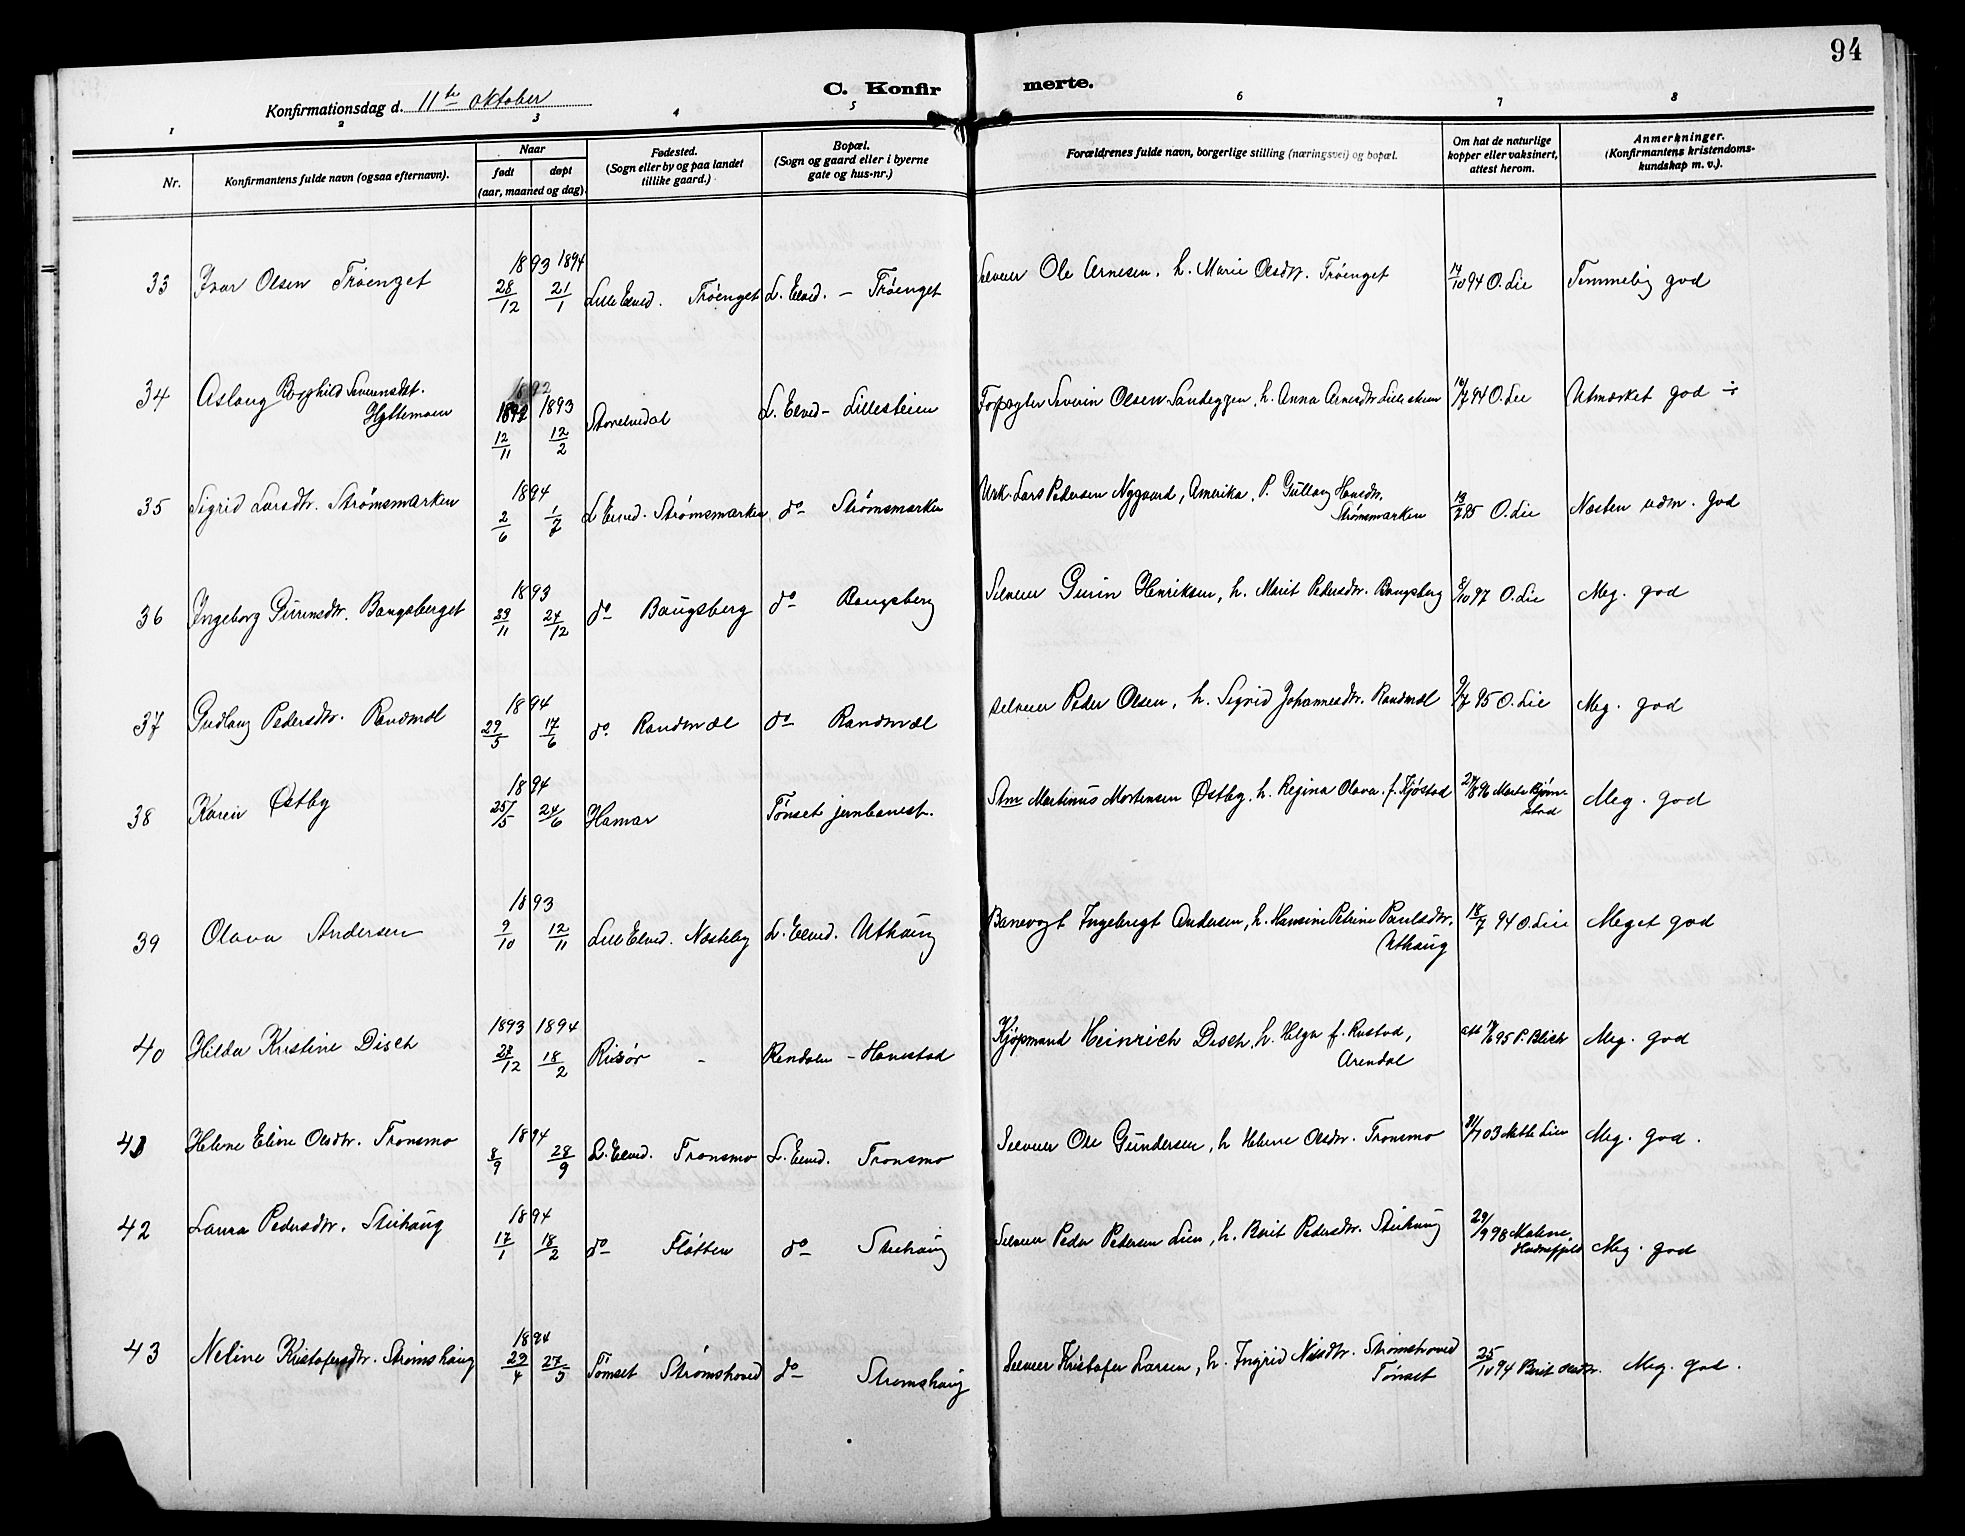 94
C. Konfirmerte.
Konfirmationsdag d. 11te oktober
1 2 3 4 5 6 7 8
Nr. Konfirmantens fulde navn (ogsaa efternavn). Naar født døpt (aar, maaned og dag). Fødested. (Sogn eller by og paa landet tillike gaard.) Bopæl. (Sogn og gaard eller i byerne gate og hus-nr.) Forældrenes fulde navn, borgerlige stilling (næringsvei) og bopæl. Om hat de naturlige kopper eller vaksinert, attest herom. Anmerkninger. (Konfirmantens kristendomskundskap m. v.).
33 Ivar Olsen Trøenget 1893 28/12 1894 21/1 Lille Elved. Trøenget L. Elved. – Trøenget Selveier Ole Arnesen, h. Marie Olsdtr. Trøenget 14/10 94 O. Lie Temmelig god
34 Aslaug Borghild Severinsdt. Hyttemoen 1892 1892 12/11 1893 12/2 Storelvedal L. Elved – Lillesteien Forpagter Severin Olsen Sandeggen, h. Anna Arnesdtr 94 O. Lie Utmærket god
35 Sigrid Larsdtr. Strømsmarken 1894 2/6 1/7 L Elved. Strømsmarken do Strømsmarken Lars Pedersen Nygaard, Amerika, P. Gullaug Hansdtr. Strømsmarken 95 O. Lie Næsten udm. god
36 Ingeborg Gurinsdtr. Baugsberget 1893 23/11 24/12 do Baugsberg do Baugsberg Selveier Gurin Henriksen, h. Marit Pedersdtr. Baugsberg 8/10 97 O. Lie Meg. god
37 Gudlaug Pedersdtr. Randmæl 1894 29/5 17/6 do Randmæl do Randmæl Selveier Peder Olsen, h. Sigrid Johannesdtr. Randmæl 9/7 95 O. Lie Meg. god
38 Karen Østby 1894 25/5 24/6 Hamar Tønset jernbanest. Martinus Mortensen Østby, h. Regina Olava f. Kjøstad 27/8 96 Marte Bjørnstad Meg. god
39 Olava Andersen 1893 9/10 12/11 Lille Elved. Næsteby L. Elved. Uthaug Banevogt Ingebrigt Andersen, h. Hansine Petrine Paulsdtr. Uthaug 18/7 94 O. Lie Meget god
40 Hilda Kristine Disch 1893 23/12 1894 18/2 Risør – Rendalen – Hanestad Kjøpmand Heinrich Disch, h. Helga f. Rustad, Arendal 95 P. Blich Meg. god
41 Helene Eline Olsdtr. Tronsmo 1894 8/9 28/9 L. Elved. Tronsmo L. Elved. Tronsmo Selveier Ole Gundersen, h Helene Olsdtr. Tronsmo 03 Mette Lien Meg. god.
42 Laura Pedersdtr. Steihaug 1894 17/1 18/2 do Fløtten do Steihaug Selveier Peder Pedersen Lien, h. Berit Pedersdtr. Steihaug 29/9 98 Malene Meg. god
43 Neline Kristofersdtr. Strømshaug 1894 29/4 27/5 Tønset Strømshoved do Strømshaug Selveier Kristofer Larsen, h. Ingrid Nilsdtr. Strømshoved Tønset 25/10 94 Berit Olsdtr. Meg. god.